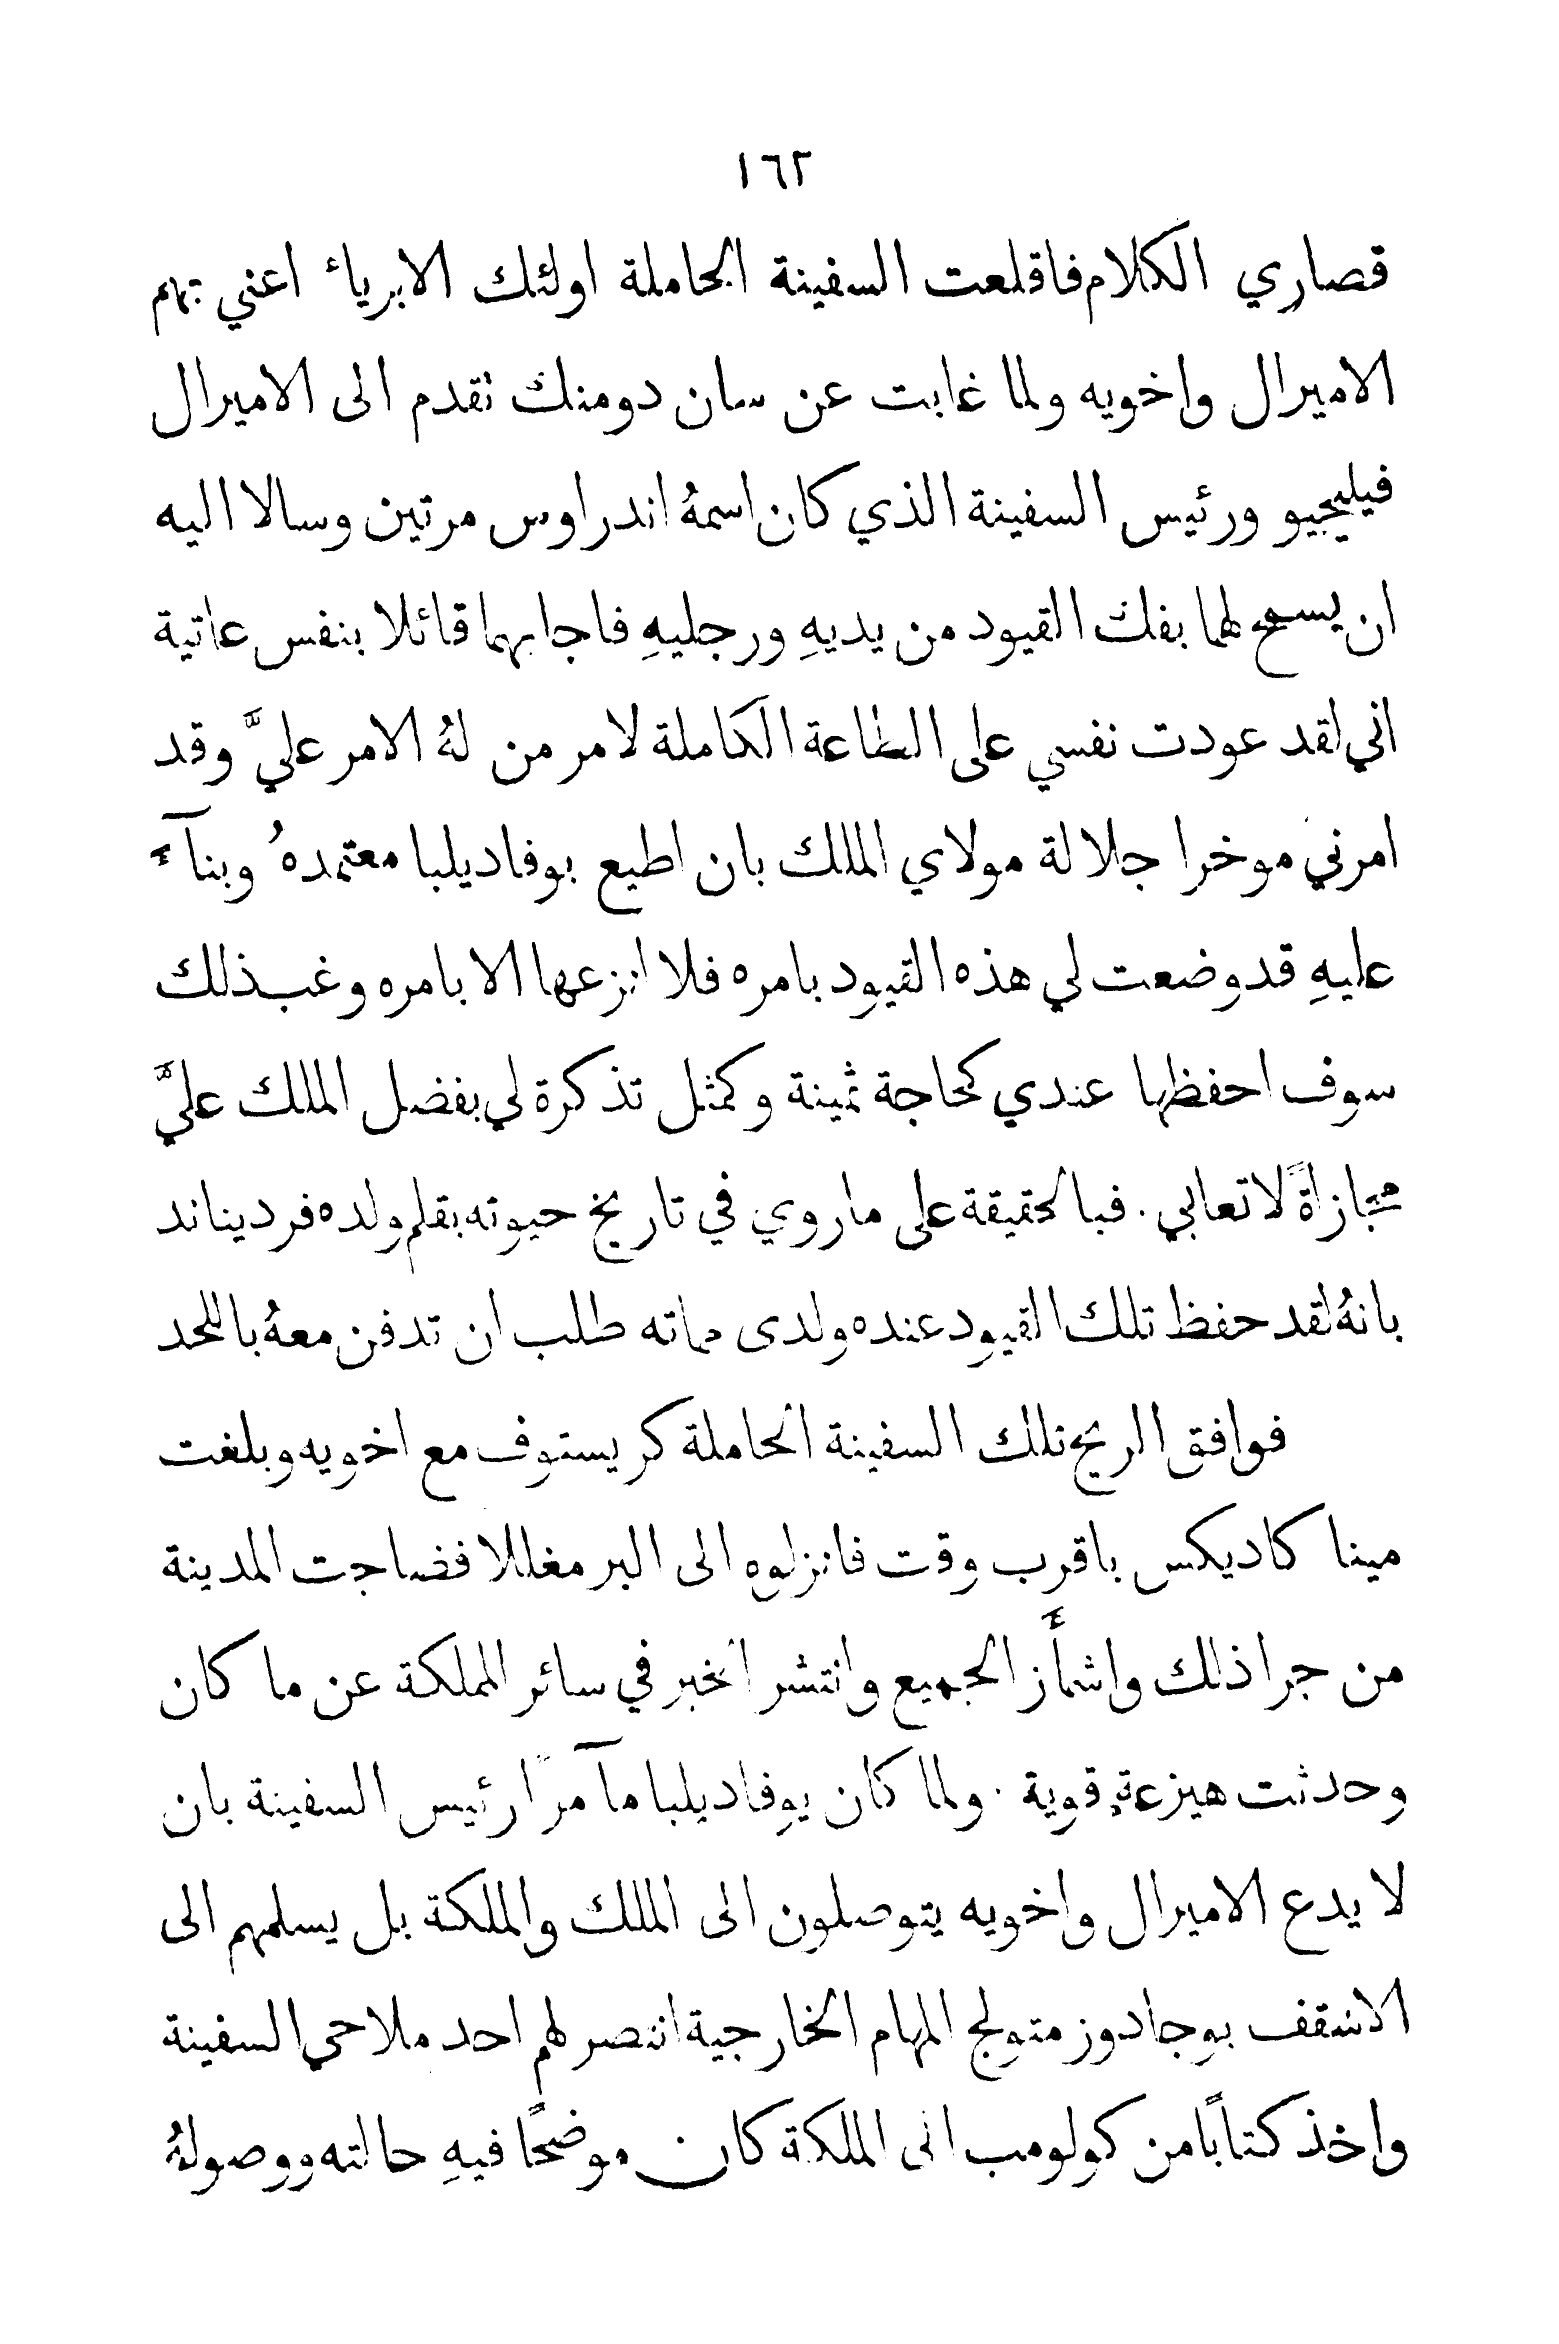 ١٦٢
قصاري الكلام فاقلعت السفينة الحاملة اولئك الابرياء اعني بهم
الاميرال واخويه ولما غابت عن سان دومنك تقدم الى الاميرال
فيليجيو ورئيس السفينة الذي كان اسمهُ اندراوس مرتين وسالا اليه
ان يسمح لهما بفك القيود من يديهِ ورجليهِ فاجابهما قائلا بنفس عاتية
اني لقد عودت نفسي على الطاعة الكاملة لامر من لهُ الامر عليَّ وقد
امرني موخرا جلالة مولاي الملك بان اطيع بوفاديلبا معتمدهُ وبنآءً
عليهِ قد وضعت لي هذه القيود بامره فلا انزعها الا بامره وغب ذلك
سوف احفظها عندي كحاجة ثمينة وكمثل تذكرة لي بفضل الملك عليَّ
مجازاةً لاتعابي . فبالحقيقة على ما روي في تاريخ حيوته بقلم ولده فرديناند
بانهُ لقد حفظ تلك القيود عنده ولدى مماته طلب ان تدفن معهُ باللحد
فوافق الريح تلك السفينة الحاملة كريستوف مع اخويه وبلغت
مينا كاديكس باقرب وقت فانزلوه الى البر مغللا فضاجت المدينة
من جرا ذلك واشمأز الجميع وانتشر الخبر في سائر المملكة عن ما كان
وحدثت هيزعة قوية . ولما كان بوفاديلبا مآمرًا رئيس السفينة بان
لا يدع الاميرال واخويه يتوصلون الى الملك والملكة بل يسلمهم الى
الاسقف بوجادوز متولج المهام الخارجية انتصر لهم احد ملاحي السفينة
واخذ كتابًا من كولومب الى الملكة كان موضحًا فيهِ حالته ووصولهُ